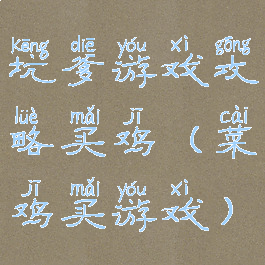 kēng diē yóu xì gōng
坑爹游戏攻
lüè mǎi jī cài
略买鸡（菜
jī mǎi yóu xì
鸡买游戏）